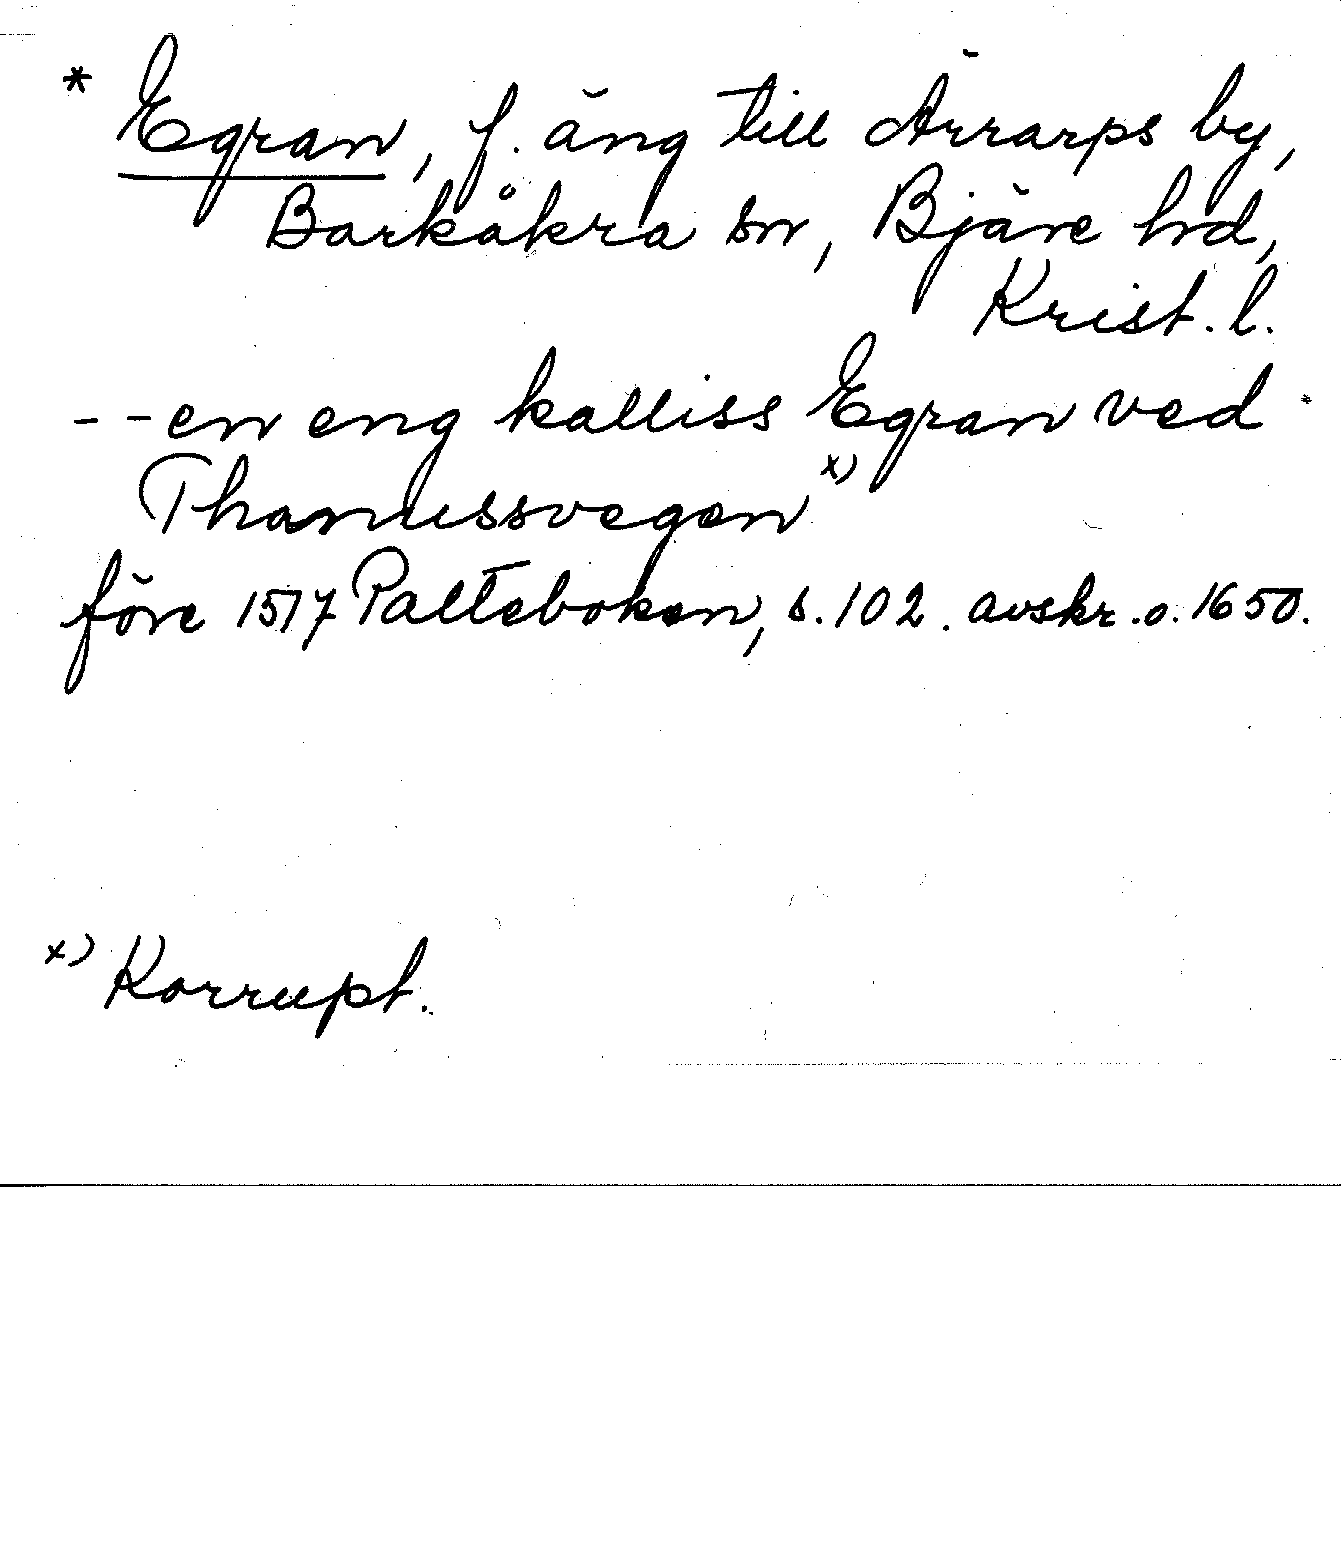 * Egran, f. äng till Ärrarps by,
Barkåkra sn, Bjäre hd,
Krist. l.
- - en eng kalliss Egran ved
Thanussvegen x)
före 1517 Palteboken, s. 102. avskr. o. 1650.
x) Korrupt.